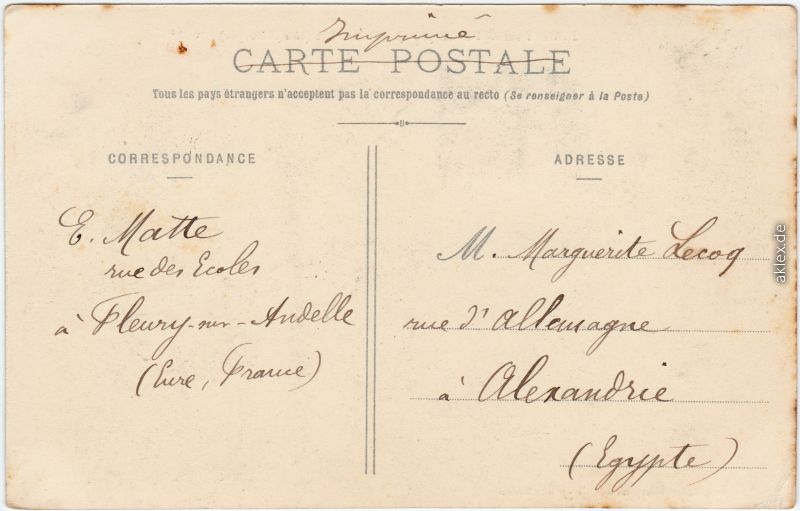 Imprimé
CARTE POSTALE
Tous les pays étrangers n'acceptent pas la correspondance au recto (Se renseigner à la Poste)
CORRESPONDANCE
E. Matte
rue des Ecoles
à Fleury-sur-Andelle
(Eure, France)
ADRESSE
M. Marguerite Lecoq
rue d'Allemagne
à Alexandrie
(Egypte)
aklex.de